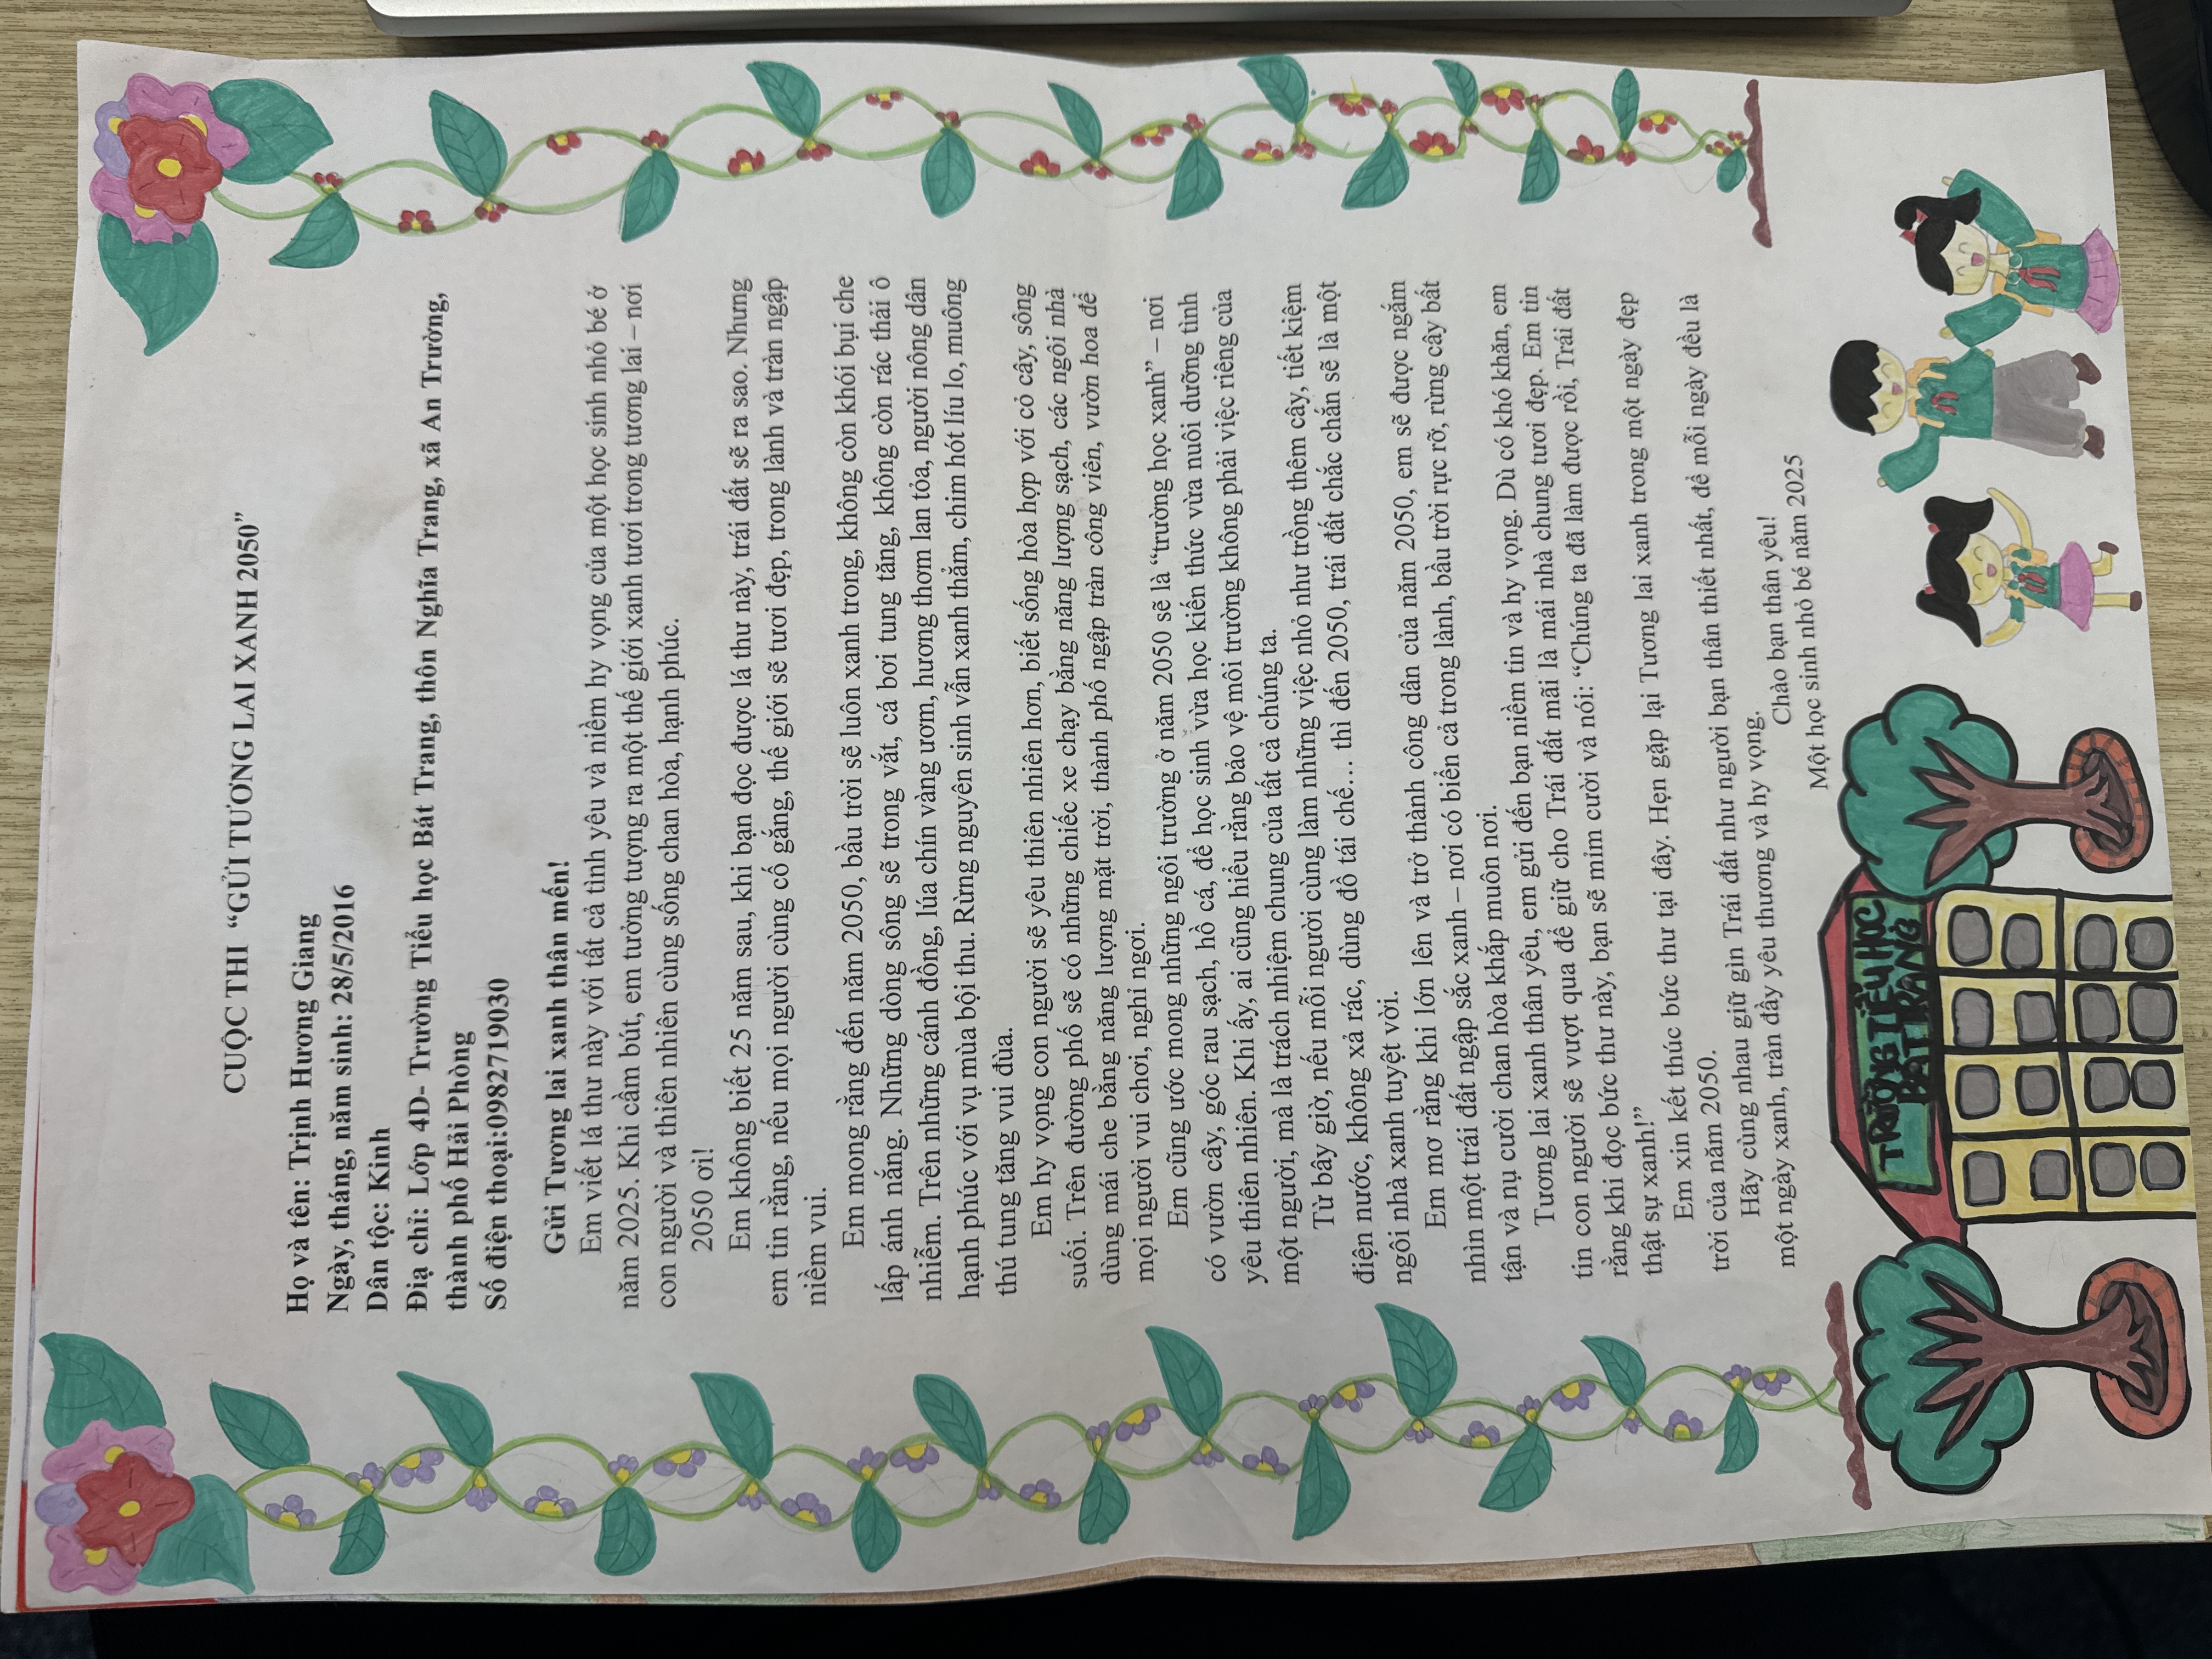 CUỘC THI “GỬI TƯƠNG LAI XANH 2050”
Họ và tên: Trịnh Hương Giang
Ngày, tháng, năm sinh: 28/5/2016
Dân tộc: Kinh
Địa chỉ: Lớp 4D- Trường Tiểu học Bát Trang, thôn Nghĩa Trang, xã An Trường,
thành phố Hải Phòng
Số điện thoại:0982719030
Gửi Tương lai xanh thân mến!
Em viết lá thư này với tất cả tình yêu và niềm hy vọng của một học sinh nhỏ bé ở
năm 2025. Khi cầm bút, em tưởng tượng ra một thế giới xanh tươi trong tương lai – nơi
con người và thiên nhiên cùng sống chan hòa, hạnh phúc.
2050 ơi!
Em không biết 25 năm sau, khi bạn đọc được lá thư này, trái đất sẽ ra sao. Nhưng
em tin rằng, nếu mọi người cùng cố gắng, thế giới sẽ tươi đẹp, trong lành và tràn ngập
niềm vui.
Em mong rằng đến năm 2050, bầu trời sẽ luôn xanh trong, không còn khói bụi che
lấp ánh nắng. Những dòng sông sẽ trong vắt, cá bơi tung tăng, không còn rác thải ô
nhiễm. Trên những cánh đồng, lúa chín vàng ươm, hương thơm lan tỏa, người nông dân
hạnh phúc với vụ mùa bội thu. Rừng nguyên sinh vẫn xanh thẳm, chim hót líu lo, muông
thú tung tăng vui đùa.
Em hy vọng con người sẽ yêu thiên nhiên hơn, biết sống hòa hợp với cỏ cây, sông
suối. Trên đường phố sẽ có những chiếc xe chạy bằng năng lượng sạch, các ngôi nhà
dùng mái che bằng năng lượng mặt trời, thành phố ngập tràn công viên, vườn hoa để
mọi người vui chơi, nghỉ ngơi.
Em cũng ước mong những ngôi trường ở năm 2050 sẽ là “trường học xanh” – nơi
có vườn cây, góc rau sạch, hồ cá, để học sinh vừa học kiến thức vừa nuôi dưỡng tình
yêu thiên nhiên. Khi ấy, ai cũng hiểu rằng bảo vệ môi trường không phải việc riêng của
một người, mà là trách nhiệm chung của tất cả chúng ta.
Từ bây giờ, nếu mỗi người cùng làm những việc nhỏ như trồng thêm cây, tiết kiệm
điện nước, không xả rác, dùng đồ tái chế… thì đến 2050, trái đất chắc chắn sẽ là một
ngôi nhà xanh tuyệt vời.
Em mơ rằng khi lớn lên và trở thành công dân của năm 2050, em sẽ được ngắm
nhìn một trái đất ngập sắc xanh – nơi có biển cả trong lành, bầu trời rực rỡ, rừng cây bát
tận và nụ cười chan hòa khắp muôn nơi.
Tương lai xanh thân yêu, em gửi đến bạn niềm tin và hy vọng. Dù có khó khăn, em
tin con người sẽ vượt qua để giữ cho Trái đất mãi là mái nhà chung tươi đẹp. Em tin
rằng khi đọc bức thư này, bạn sẽ mỉm cười và nói: “Chúng ta đã làm được rồi, Trái đất
thật sự xanh!”
Em xin kết thúc bức thư tại đây. Hẹn gặp lại Tương lai xanh trong một ngày đẹp
trời của năm 2050.
Hãy cùng nhau giữ gìn Trái đất như người bạn thân thiết nhất, để mỗi ngày đều là
một ngày xanh, tràn đầy yêu thương và hy vọng.
Chào bạn thân yêu!
Một học sinh nhỏ bé năm 2025
TRƯỜNG TIỂU HỌC
BÁT TRANG